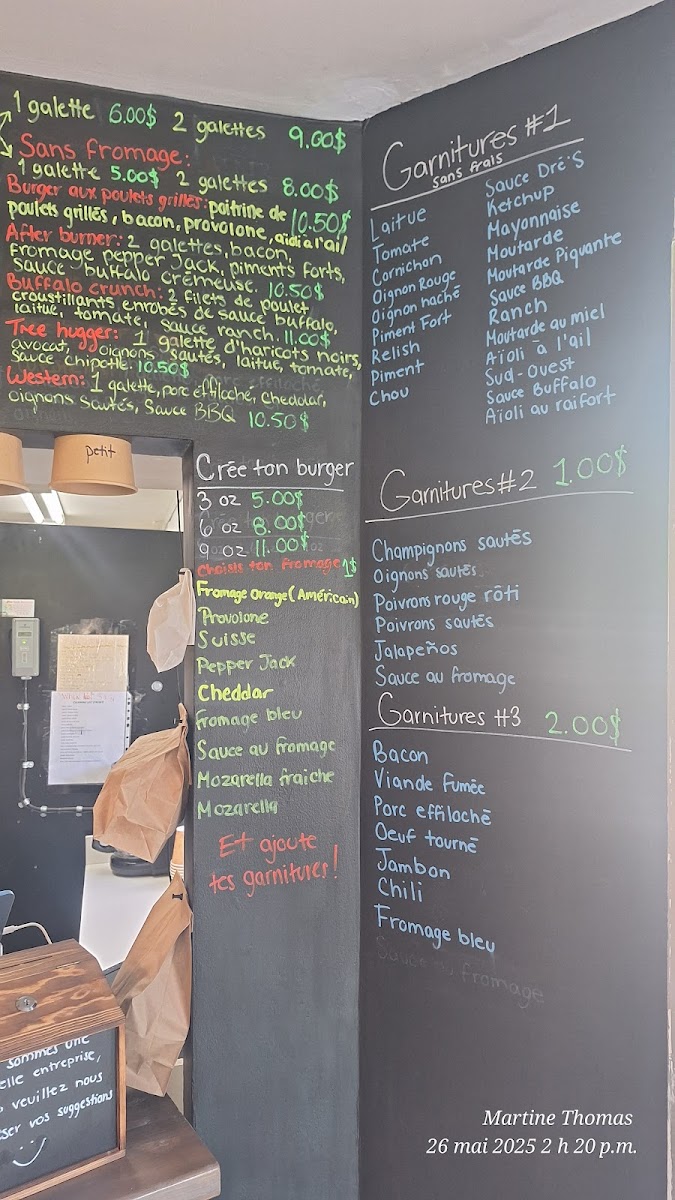 1 galette 6.00$ 2 galettes 9.00$
Sans fromage:
1 galette 5.00$ 2 galettes 8.00$
Burger aux poulets grillés: poitrine de
poulets grillés, bacon, provolone, aidi à l'ail 10.50$
After burner: 2 galettes, bacon,
fromage pepper Jack, piments forts,
sauce buffalo crémeuse. 10.50$
Buffalo crunch: 2 filets de poulet
croustillants enrobés de sauce buffalo,
laitue, tomate, sauce ranch. 11.00$
Tree hugger: 1 galette d'haricots noirs,
avocat, oignons sautés, laitue, tomate,
sauce chipotle. 10.50$
Western: 1 galette, porc effiloché, cheddar,
oignons sautés, sauce BBQ 10.50$
petit
Crée ton burger
3 oz 5.00$
6 oz 8.00$
9 oz 11.00$
choisis ton fromage 1$
Fromage orange (Américain)
Provolone
Suisse
Pepper Jack
Cheddar
fromage bleu
Sauce au fromage
Mozarella fraiche
Mozarella
Et ajoute
tes garnitures!
Garnitures #1
sans frais
Laitue
Tomate
Cornichon
Oignon Rouge
Oignon haché
Piment Fort
Relish
Piment
Chou
Sauce Dré'S
Ketchup
Mayonnaise
Moutarde
Moutarde Piquante
Sauce BBQ
Ranch
Moutarde au miel
Aïoli à l'ail
Sud-Ouest
Sauce Buffalo
Aïoli au raifort
Garnitures #2 1.00$
Champignons sautés
Oignons sautés
Poivrons rouge rôti
Poivrons sautés
Jalapeños
Sauce au fromage
Garnitures #3 2.00$
Bacon
Viande Fumée
Porc effiloché
Oeuf tourné
Jambon
Chili
Fromage bleu
Sauce au fromage
sommes une
elle entreprise,
veuillez nous
ser vos suggestions
Martine Thomas
26 mai 2025 2 h 20 p.m.